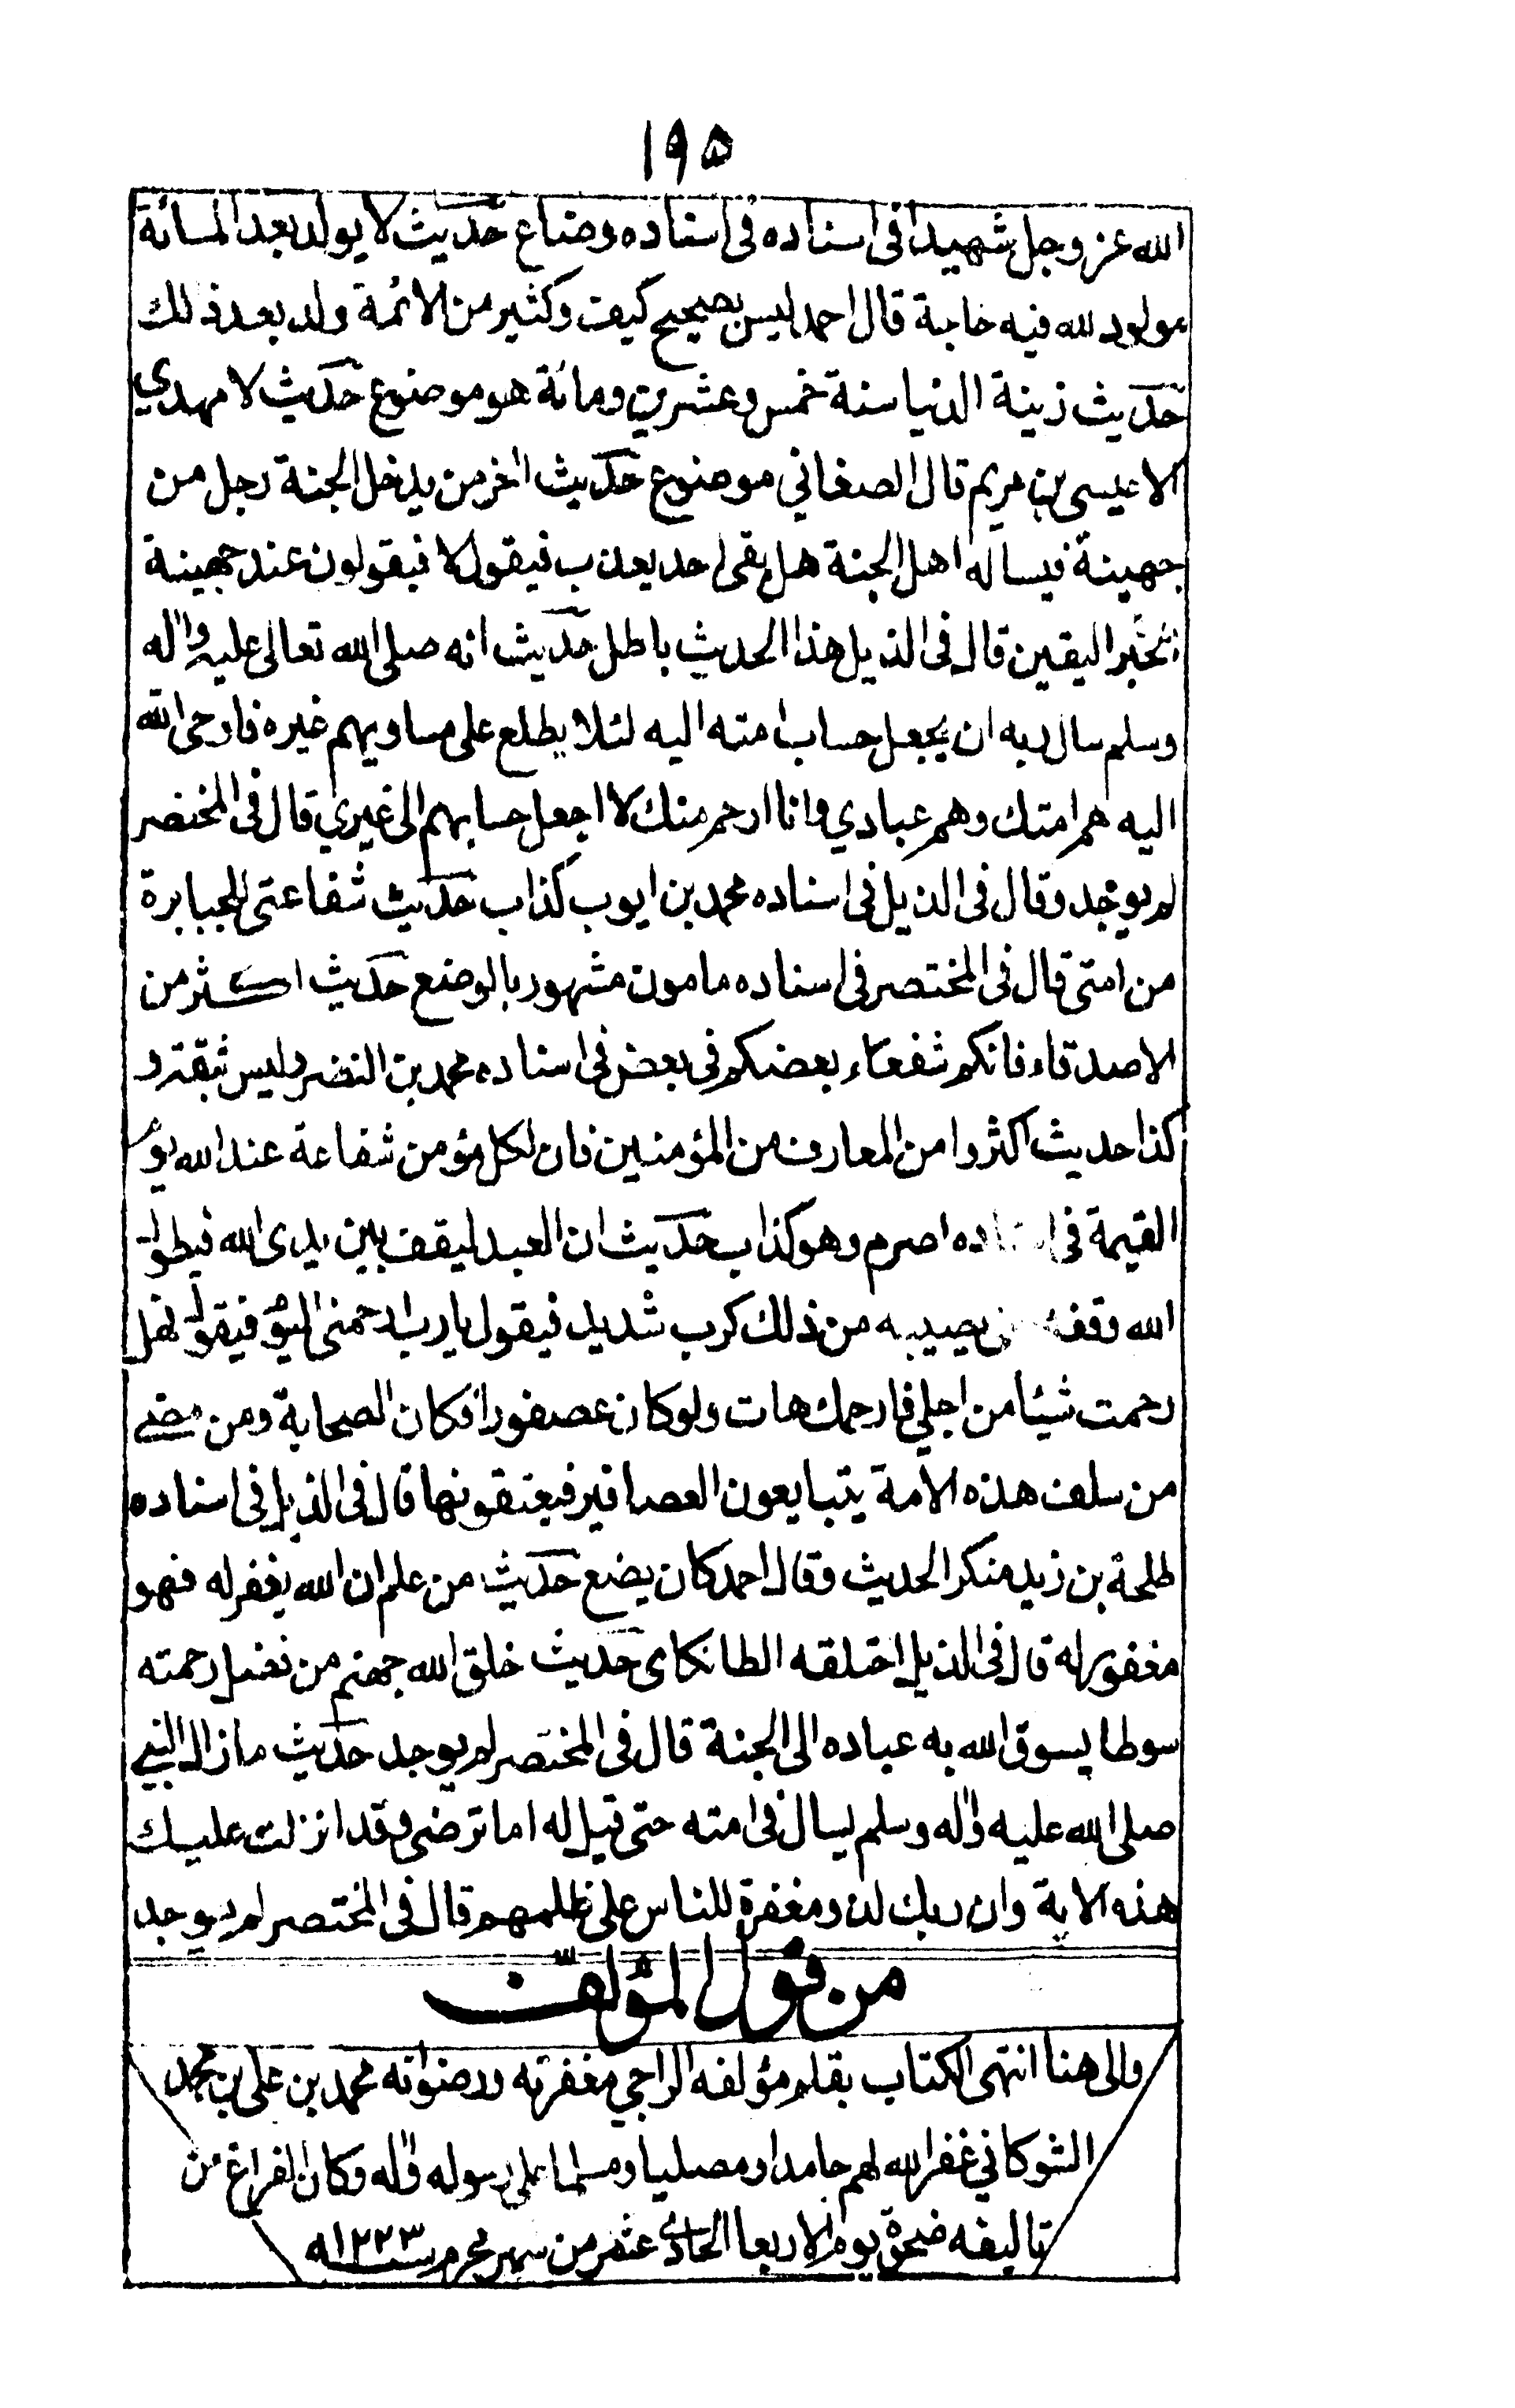 ١٩٥
الله عز وجل شهيدا فى اسناده فى اسناده وضاع حديث لا يولد بعد المائة
مولود لله فيه حاجة قال احمد ليس بصحيح كيف وكثير من الائمة ولد بعد ذلك
حديث زينة الدنيا سنة خمس وعشرين ومائة هو موضوع حديث لا مهدي
الا عيسى بن مريم قال الصغاني موضوع حديث اخر من يدخل الجنة رجل من
جهينة فيساله اهل الجنة هل بقى احد يعذب فيقول لا فيقولون عند جهينة
الخبر اليقين قال فى الذيل هذا الحديث باطل حديث انه صلى الله تعالى عليه واله
وسلم سال ربه ان يجعل حساب امته اليه لئلا يطلع على مساويهم غيره فاوحى الله
اليه هم امتك وهم عبادي وانا ارحم منك لا اجعل حسابهم الى غيري قال فى المختصر
لم يوجد وقال فى الذيل فى اسناده محمد بن ايوب كذاب حديث شفاعتى للجبابرة
من امتى قال فى المختصر فى اسناده مامون مشهور بالوضع حديث اكثر من
الاصدقاء فانكم شفعاء بعضكم فى بعض فى اسناده محمد بن النضر وليس بثقة و
كذا حديث اكثروا من المعارف من المؤمنين فان لكل مؤمن شفاعة عند الله يوم
القيمة فى اصرم وهو كذاب حديث ان العبد ليقف بين يدى الله فيطول
الله وقفه يصيبه من ذلك كرب شديد فيقول يا رب ارحمنى اليوم فيقول هل
رحمت شيئا من اجلي فارحمك هات ولو كان عصفورا فكان الصحابة ومن مضى
من سلف هذه الامة يتبايعون العصافير فيعتقونها قال فى الذيل فى اسناده
طلحة بن زيد منكر الحديث وقال احمد كان يضع حديث من علم ان الله يغفر له فهو
مغفور له قال فى الذيل اختلقه الطانكاى حديث خلق الله جهنم من فضل رحمته
سوطا يسوق الله به عباده الى الجنة قال فى المختصر لم يوجد حديث ما زال النبي
صلى الله عليه واله وسلم يسال فى امته حتى قيل له اما ترضى وقد انزلت عليك
هذه الاية وان ربك لذو مغفرة للناس على ظلمهم قال فى المختصر لم يوجد
من قول المؤلف
والى هنا انتهى الكتاب بقلم مؤلفه الراجي مغفرته ورضوانه محمد بن على بن محمد
الشوكاني غفر الله لهم حامدا ومصليا ومسلما على رسوله واله وكان الفراغ من
تاليفه ضحوة يوم الاربعا الحادي عشر من شهر محرم سنة ١٢٢٣ه